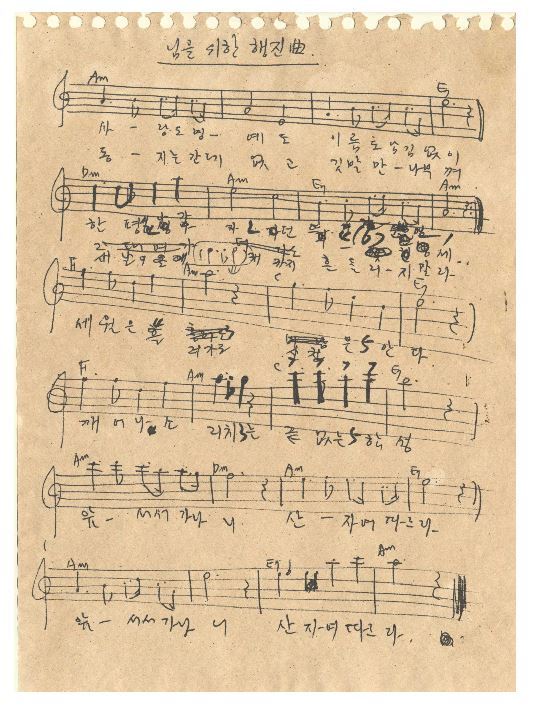 님을 위한 행진曲.
Am E7
사- 랑도 명- 예도 이름도 남김 없이
동- 지는 간데 없고 깃발만-나부껴
Dm Am E7 Am
한 평생
세 흔들리-지 말라-
F Am C E7
세월은 흘
러가도 은 안다
F Am C E7
깨어나 소리치는 끝 없는 함성
Am Dm Am E7
앞- 서서 가나니 산-자여 따르라-
Am E7 Am
앞- 서서 가나니 산 자-여 따르라.